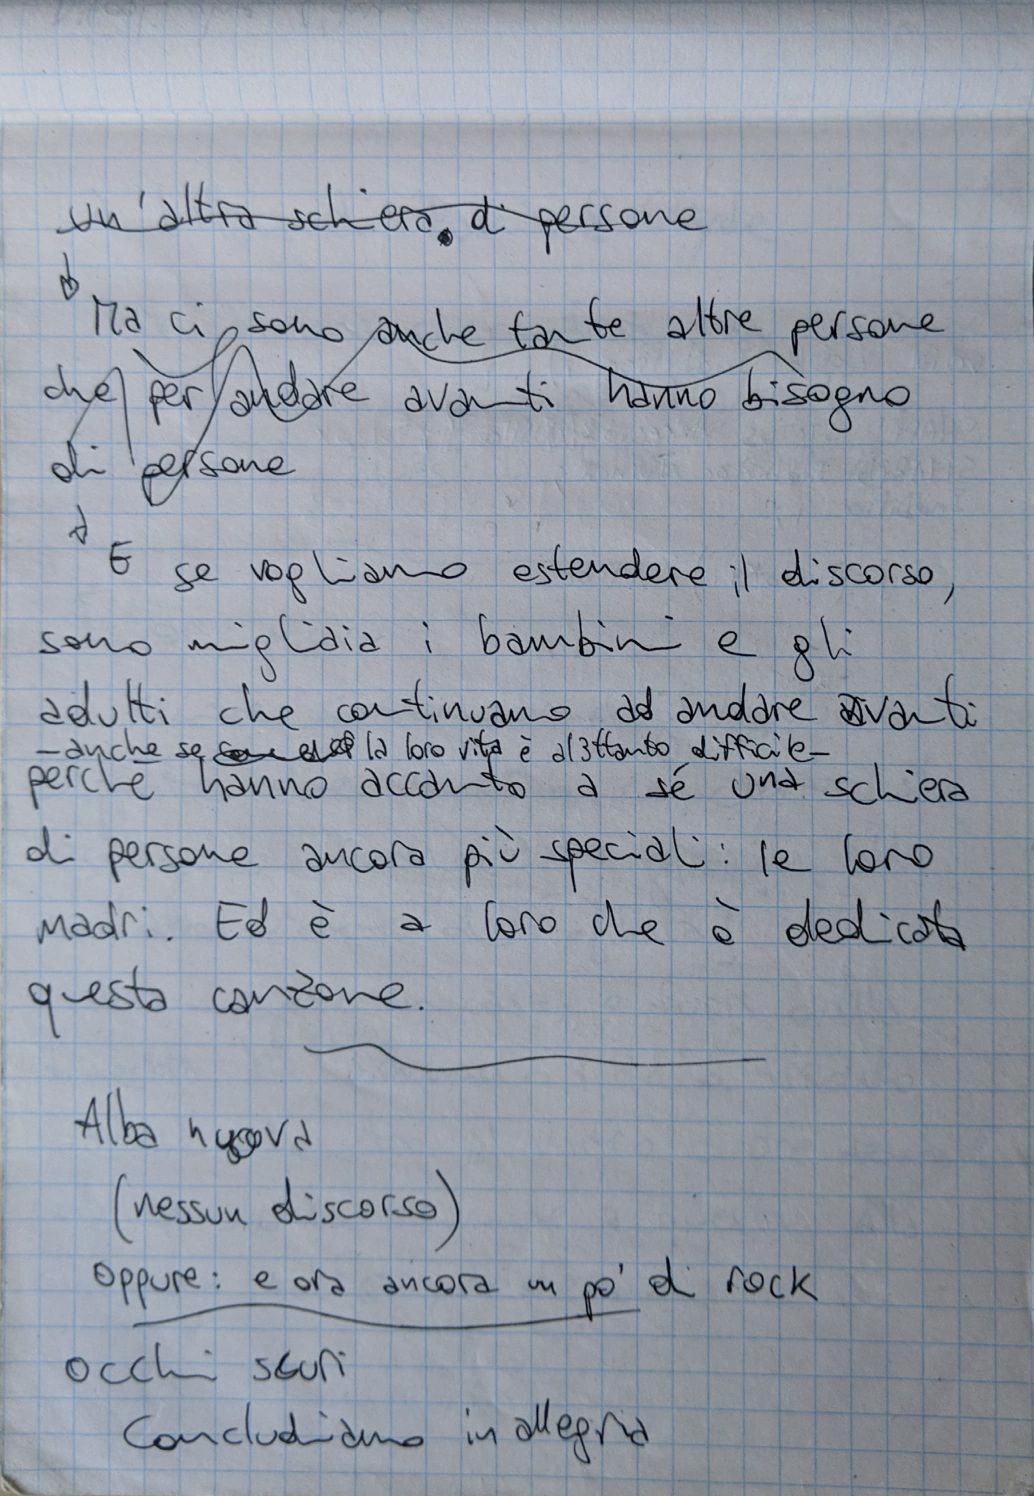 un'altra schiera di persone
Ma ci sono anche tante altre persone
che per andare avanti hanno bisogno
di persone
E se vogliamo estendere il discorso,
sono migliaia i bambini e gli
adulti che continuano ad andare avanti
-anche se la loro vita è al3ttanto difficile-
perché hanno accanto a sé una schiera
di persone ancora più speciali: le loro
madri. Ed è a loro che è dedicata
questa canzone.
Alba nuova
(nessun discorso)
oppure: e ora ancora un po' di rock
occhi scuri
Concludiamo in allegria